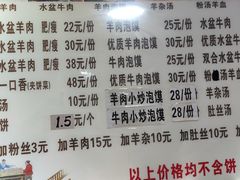 水盆羊肉 水盆牛肉 羊肉泡馍 羊杂汤 粉汤羊血
水盆羊肉 肥瘦 22元/份 羊肉泡馍 25元/份 水盆羊
水盆羊肉 肥瘦 30元/份 优质羊肉泡馍 30元/份 双合水盆
水盆牛肉 肥瘦 30元/份 优质牛肉泡馍 30元/份 粉汤羊血
一口香(夹饼菜) 48元/份 羊杂泡馍 30元/份 羊杂汤
10元/份 羊肉小炒泡馍 28/份 羊肚汤
饼 1.5元/个 牛肉小炒泡馍 28/份 肚丝汤
加粉3元 加羊肉15元 加羊杂10元 加肚丝10元
以上价格均不含饼